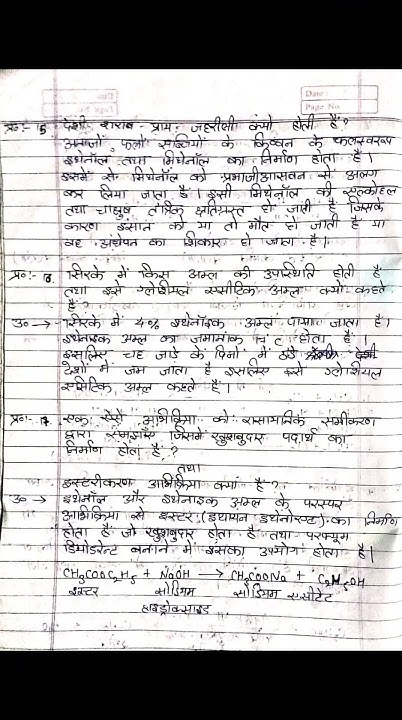 Date :
Page No.
प्र०:- 15 देशी शराब प्रायः जहरीली क्यों होती है?
अनाजों, फलों सब्जियों के किण्वन के फलस्वरूप
इथेनॉल तथा मिथेनॉल का निर्माण होता है।
इसमें से मिथेनॉल को प्रभाजी आसवन से अलग
कर लिया जाता है। इसी मिथेनॉल की
तथा तंत्रिक क्षतिग्रस्त हो जाती है जिसके
कारण इंसान को या तो मौत हो जाती है या
वह अंधेपन का शिकार हो जाता है।
प्र०:- 16. सिरके में किस अम्ल की उपस्थिति होती है
तथा इसे ग्लेशियल एसीटिक अम्ल क्यों कहते
है?
उ० → सिरके में 4% इथेनॉइक अम्ल पाया जाता है।
इथेनाइक अम्ल का जमनांक होता है
इसलिए यह जाड़े के दिनों में ठंडे देशों
देशों में जम जाता है इसलिए इसे ग्लेशियल
एसिटिक अम्ल कहते हैं।
प्र०:- 17. एक ऐसे अभिक्रिया को रासायनिक समीकरण
द्वारा समझाएँ जिसमें खुशबूदार पदार्थ का
निर्माण होता है?
तथा
इस्टरीकरण अभिक्रिया क्या है?
उ० → इथेनॉल और इथेनाइक अम्ल के परस्पर
अभिक्रिया से इस्टर (इथायन इथेनोएट) का निर्माण
होता है जो खुशबुदार होता है तथा परफ्यूम
डियोडरेंट बनाने में इसका उपयोग होता है।
CH3COOC2H5 + NaOH → CH3COONa + C2H5OH
इस्टर सोडियम सोडियम एसीटेट
हाइड्रोक्साइड